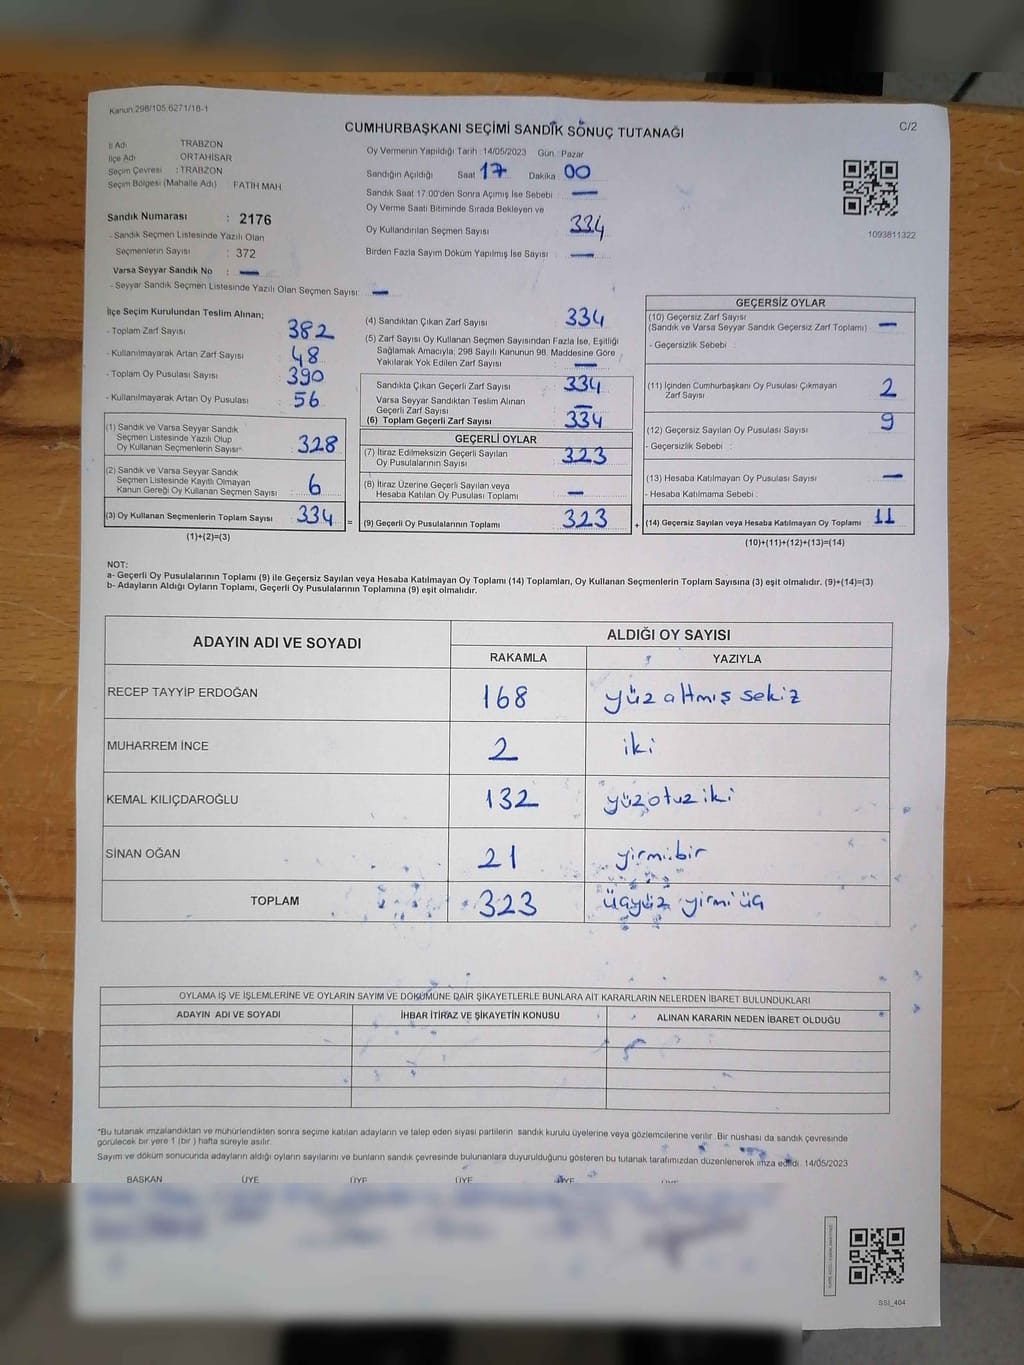 Kanun 298/105,6271/18-1
CUMHURBAŞKANI SEÇİMİ SANDIK SONUÇ TUTANAĞI
C/2
İl Adı TRABZON
İlçe Adı ORTAHİSAR
Seçim Çevresi : TRABZON
Seçim Bölgesi (Mahalle Adı) FATİH MAH
Sandık Numarası : 2176
- Sandık Seçmen Listesinde Yazılı Olan
Seçmenlerin Sayısı : 372
Varsa Seyyar Sandık No : —
- Seyyar Sandık Seçmen Listesinde Yazılı Olan Seçmen Sayısı: —
Oy Vermenin Yapıldığı Tarih :14/05/2023 Gün: Pazar
Sandığın Açıldığı Saat 17 Dakika 00
Sandık Saat 17:00'den Sonra Açımış İse Sebebi : —
Oy Verme Saati Bitiminde Sırada Bekleyen ve
Oy Kullandırılan Seçmen Sayısı : 334
Birden Fazla Sayım Döküm Yapılmış İse Sayısı : —
1093611322
İlçe Seçim Kurulundan Teslim Alınan;
- Toplam Zarf Sayısı 382
- Kullanılmayarak Artan Zarf Sayısı 48
- Toplam Oy Pusulası Sayısı 390
- Kullanılmayarak Artan Oy Pusulası 56
(1) Sandık ve Varsa Seyyar Sandık
Seçmen Listesinde Yazılı Olup
Oy Kullanan Seçmenlerin Sayısı 328
(2) Sandık ve Varsa Seyyar Sandık
Seçmen Listesinde Kayıtlı Olmayan
Kanun Gereği Oy Kullanan Seçmen Sayısı 6
(3) Oy Kullanan Seçmenlerin Toplam Sayısı 334 =
(1)+(2)=(3)
(4) Sandıktan Çıkan Zarf Sayısı 334
(5) Zarf Sayısı Oy Kullanan Seçmen Sayısından Fazla İse, Eşitliği
Sağlamak Amacıyla, 298 Sayılı Kanunun 98. Maddesine Göre
Yakılarak Yok Edilen Zarf Sayısı —
Sandıkta Çıkan Geçerli Zarf Sayısı 334
Varsa Seyyar Sandıktan Teslim Alınan
Geçerli Zarf Sayısı —
(6) Toplam Geçerli Zarf Sayısı 334
GEÇERLİ OYLAR
(7) İtiraz Edilmeksizin Geçerli Sayılan
Oy Pusulalarının Sayısı 323
(8) İtiraz Üzerine Geçerli Sayılan veya
Hesaba Katılan Oy Pusulası Toplamı —
(9) Geçerli Oy Pusulalarının Toplamı 323 +
GEÇERSİZ OYLAR
(10) Geçersiz Zarf Sayısı
(Sandık ve Varsa Seyyar Sandık Geçersiz Zarf Toplamı) —
- Geçersizlik Sebebi :
(11) İçinden Cumhurbaşkanı Oy Pusulası Çıkmayan
Zarf Sayısı 2
(12) Geçersiz Sayılan Oy Pusulası Sayısı 9
- Geçersizlik Sebebi :
(13) Hesaba Katılmayan Oy Pusulası Sayısı —
- Hesaba Katılmama Sebebi :
(14) Geçersiz Sayılan veya Hesaba Katılmayan Oy Toplamı 11
(10)+(11)+(12)+(13)=(14)
NOT:
a- Geçerli Oy Pusulalarının Toplamı (9) ile Geçersiz Sayılan veya Hesaba Katılmayan Oy Toplamı (14) Toplamları, Oy Kullanan Seçmenlerin Toplam Sayısına (3) eşit olmalıdır. (9)+(14)=(3)
b- Adayların Aldığı Oyların Toplamı, Geçerli Oy Pusulalarının Toplamına (9) eşit olmalıdır.
ADAYIN ADI VE SOYADI ALDIĞI OY SAYISI
RAKAMLA YAZIYLA
RECEP TAYYİP ERDOĞAN 168 yüz altmış sekiz
MUHARREM İNCE 2 iki
KEMAL KILIÇDAROĞLU 132 yüzotuz iki
SİNAN OĞAN 21 yirmibir
TOPLAM 323 üçyüz yirmi üç
OYLAMA İŞ VE İŞLEMLERİNE VE OYLARIN SAYIM VE DÖKÜMÜNE DAİR ŞİKAYETLERLE BUNLARA AİT KARARLARIN NELERDEN İBARET BULUNDUKLARI
ADAYIN ADI VE SOYADI İHBAR İTİRAZ VE ŞİKAYETİN KONUSU ALINAN KARARIN NEDEN İBARET OLDUĞU
*Bu tutanak imzalandıktan ve mühürlendikten sonra seçime katılan adayların ve talep eden siyasi partilerin sandık kurulu üyelerine veya gözlemcilerine verilir. Bir nüshası da sandık çevresinde
görülecek bir yere 1 (bir ) hafta süreyle asılır.
Sayım ve döküm sonucunda adayların aldığı oyların sayılarını ve bunların sandık çevresinde bulunanlara duyurulduğunu gösteren bu tutanak tarafımızdan düzenlenerek imza edildi. 14/05/2023
BAŞKAN ÜYE ÜYE ÜYE ÜYE ÜYE
SSI_404